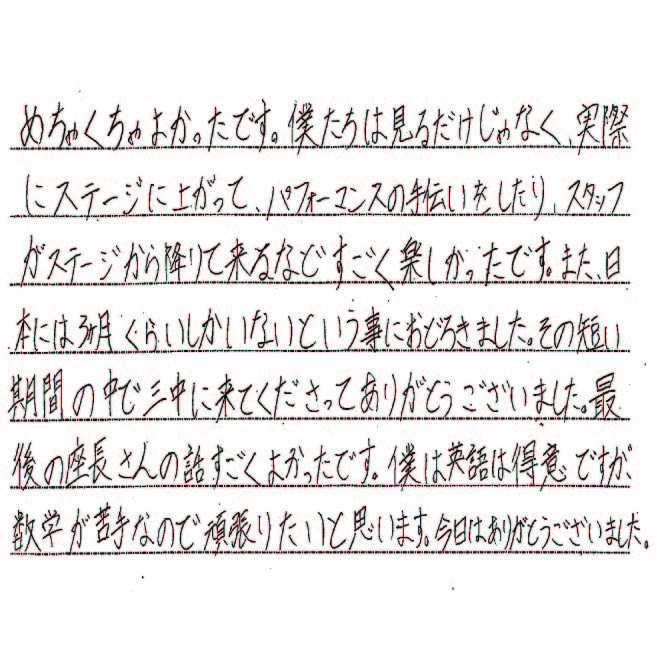 めちゃくちゃよかったです。僕たちは見るだけじゃなく、実際
にステージに上がって、パフォーマンスの手伝いをしたり、スタッフ
がステージから降りて来るなどすごく楽しかったです。また、日
本には3ヶ月くらいしかいないという事におどろきました。その短い
期間の中で三中に来てくださってありがとうございました。最
後の座長さんの話すごくよかったです。僕は英語は得意ですが、
数学が苦手なので頑張りたいと思います。今日はありがとうございました。